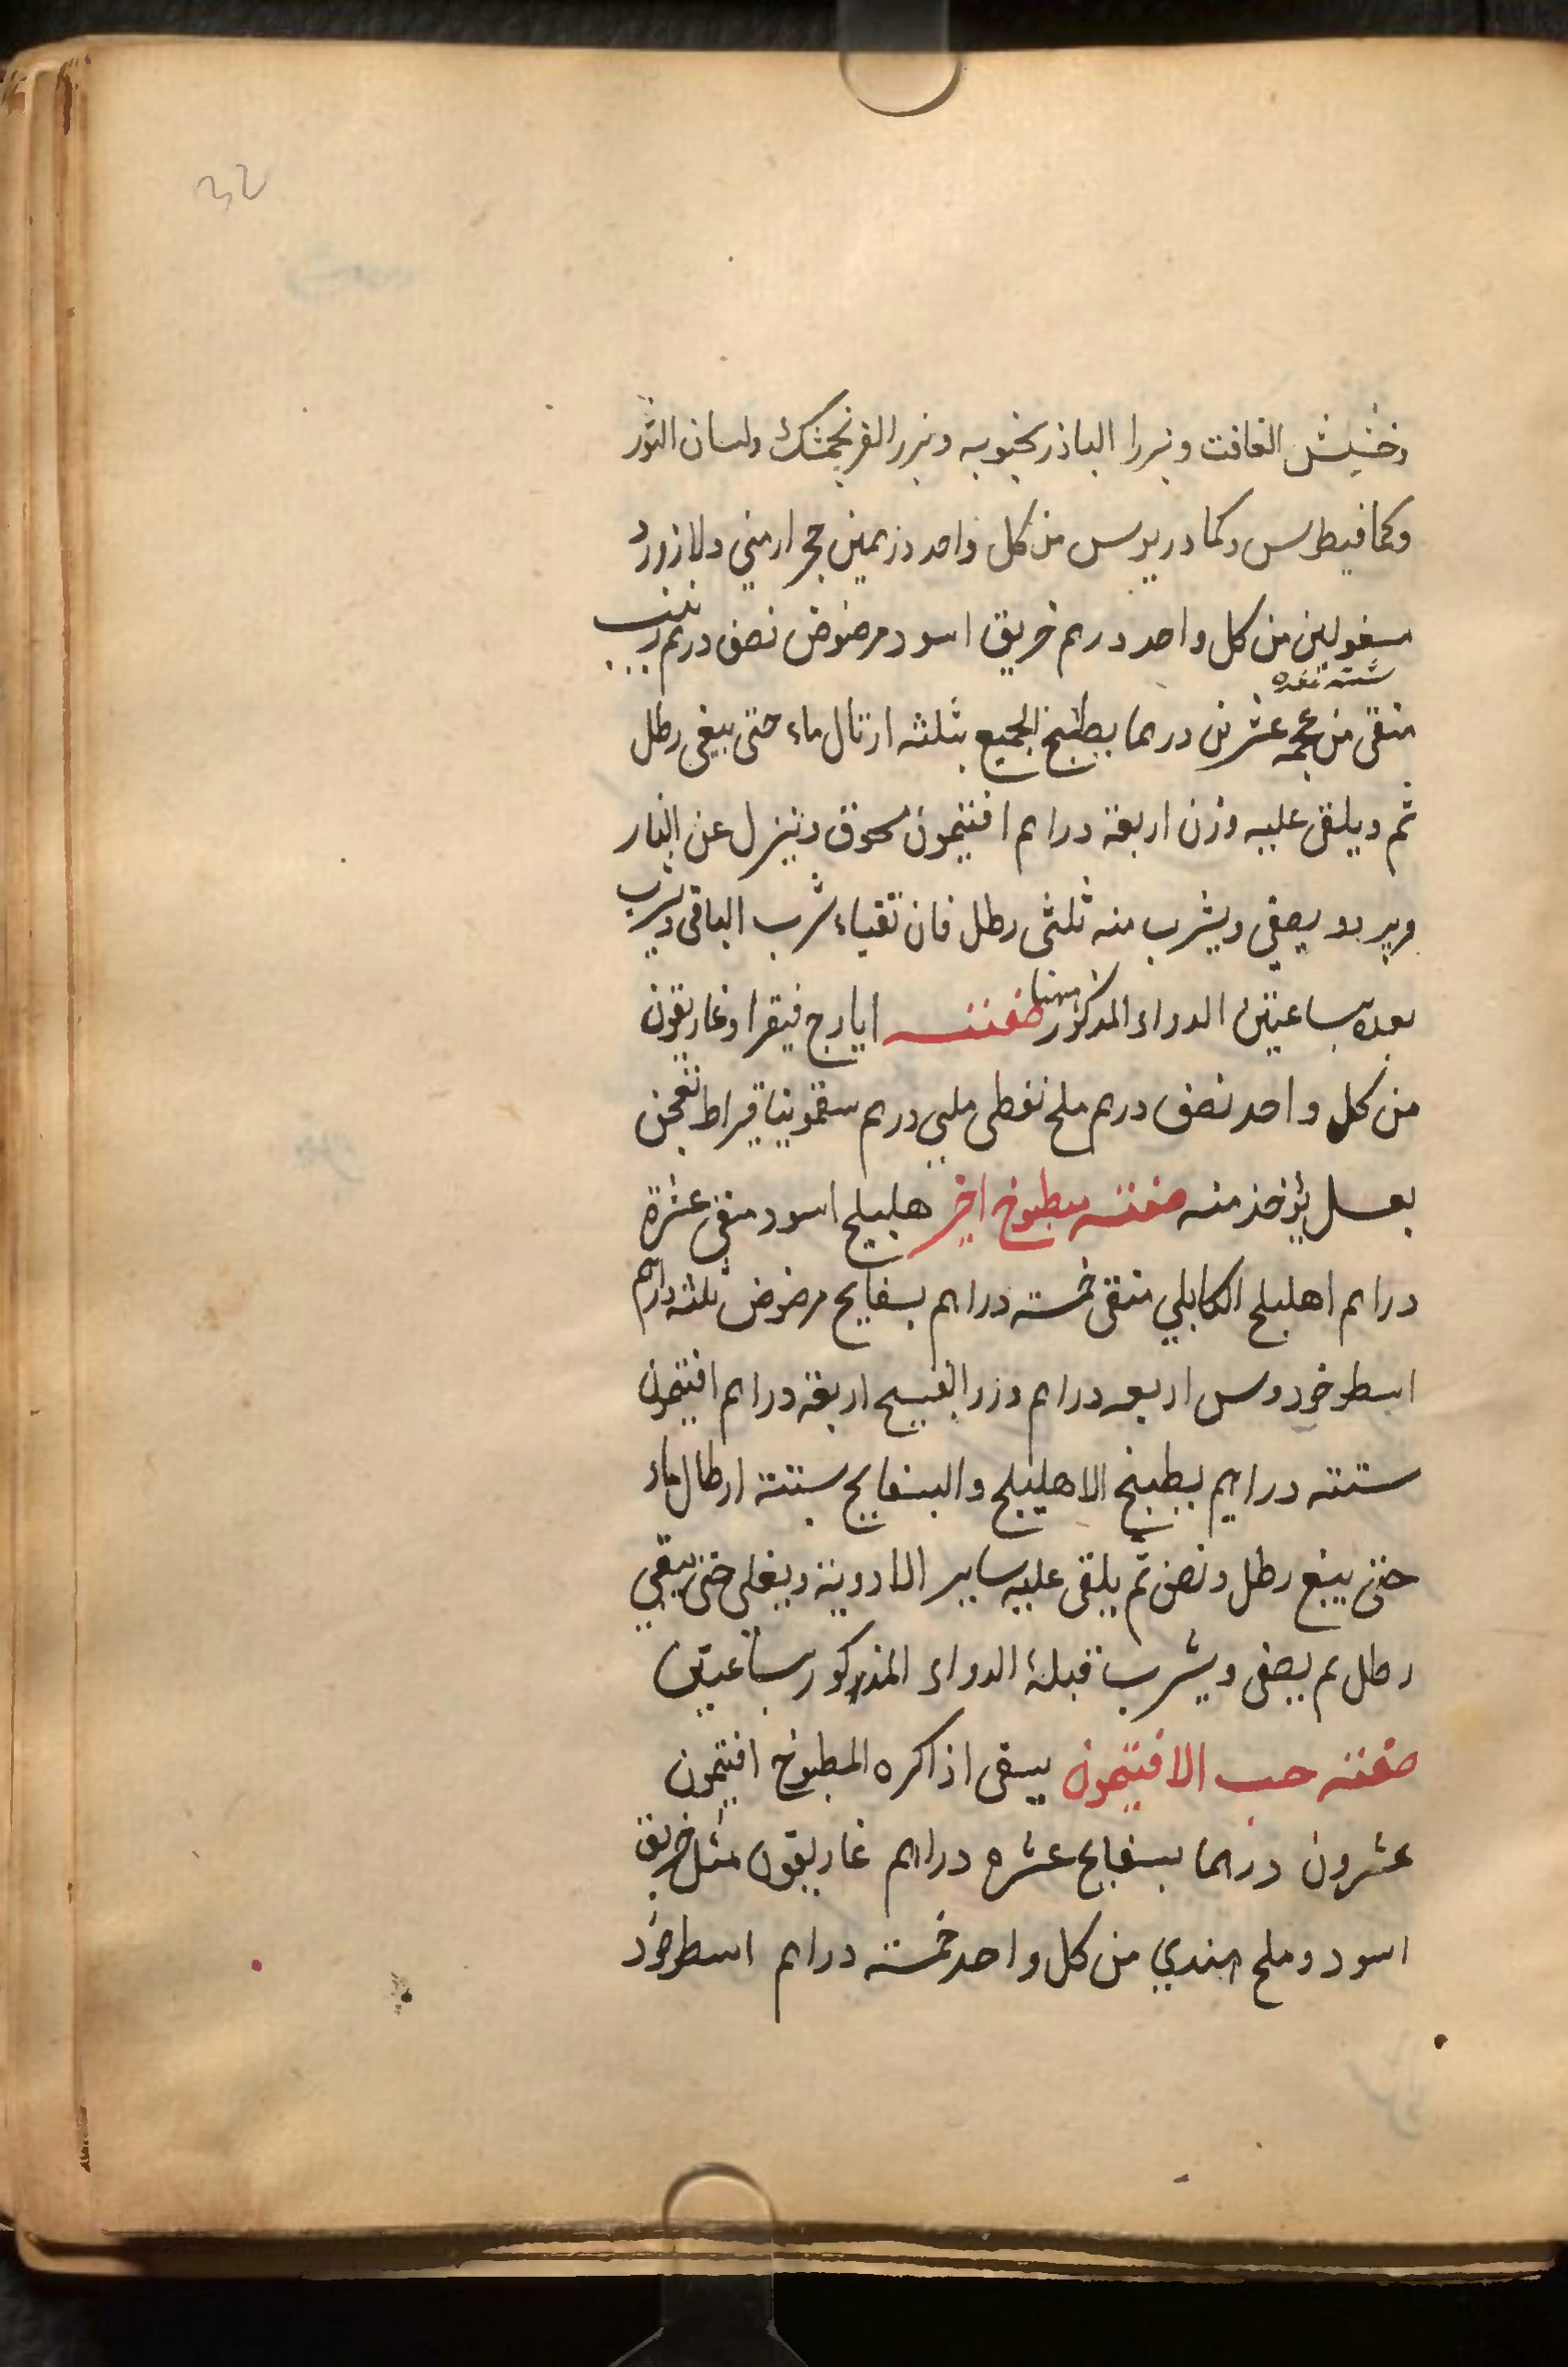 32
وحشيش الغافت وبزرا الباذرنجبويه وبزر الفرنجمشك ولسان الثور
وكمافيطوس وكمادريوس من كل واحد درهمين حجر ارمني ولازورد
مغسولين من كل واحد درهم خربق اسود مرضوض نصف درهم زبيب
منقى من عجمه عشرين درهما يطبخ الجميع بثلثه ارتال ماء حتى يبقى رطل
ثم ويلقى عليه وزن اربعة دراهم افتيمون مسحوق وينزل عن النار
ويبرد و يصفى ويشرب منه ثلثى رطل فان تقياء شرب الباقى ويشرب
بعده بساعتين الدواء المذكور صفته ايارج فيقرا وغاريقون
من كل واحد نصف درهم ملح نفطى درهم سقمونيا قيراط تعجن
بعسل يؤخذ منه صفته مطبوخ اخر هليلج اسود منقى عشرة
دراهم اهليلج الكابلي منقى خمسته دراهم بسفايج مرضوض ثلثه دراهم
اسطوخودوس اربعه دراهم اربعة دراهم افتيمون
ستته دراهم يطبخ الاهليلج والبسفايج بستته ارطال ماء
حتى يبقى رطل ونصف ثم يلقى عليه ساير الادوية ويغلى حتى يبقي
رطل ثم يصفى ويشرب قبله الدواء المذكور بساعتين
صفته حب الافتيمون يسقى اذا كره المطبوخ افتيمون
عشرون درهما بسفايج عشره دراهم غاريقون مثل خربق
اسود وملح هندي من كل واحد خمسته دراهم اسطوخود